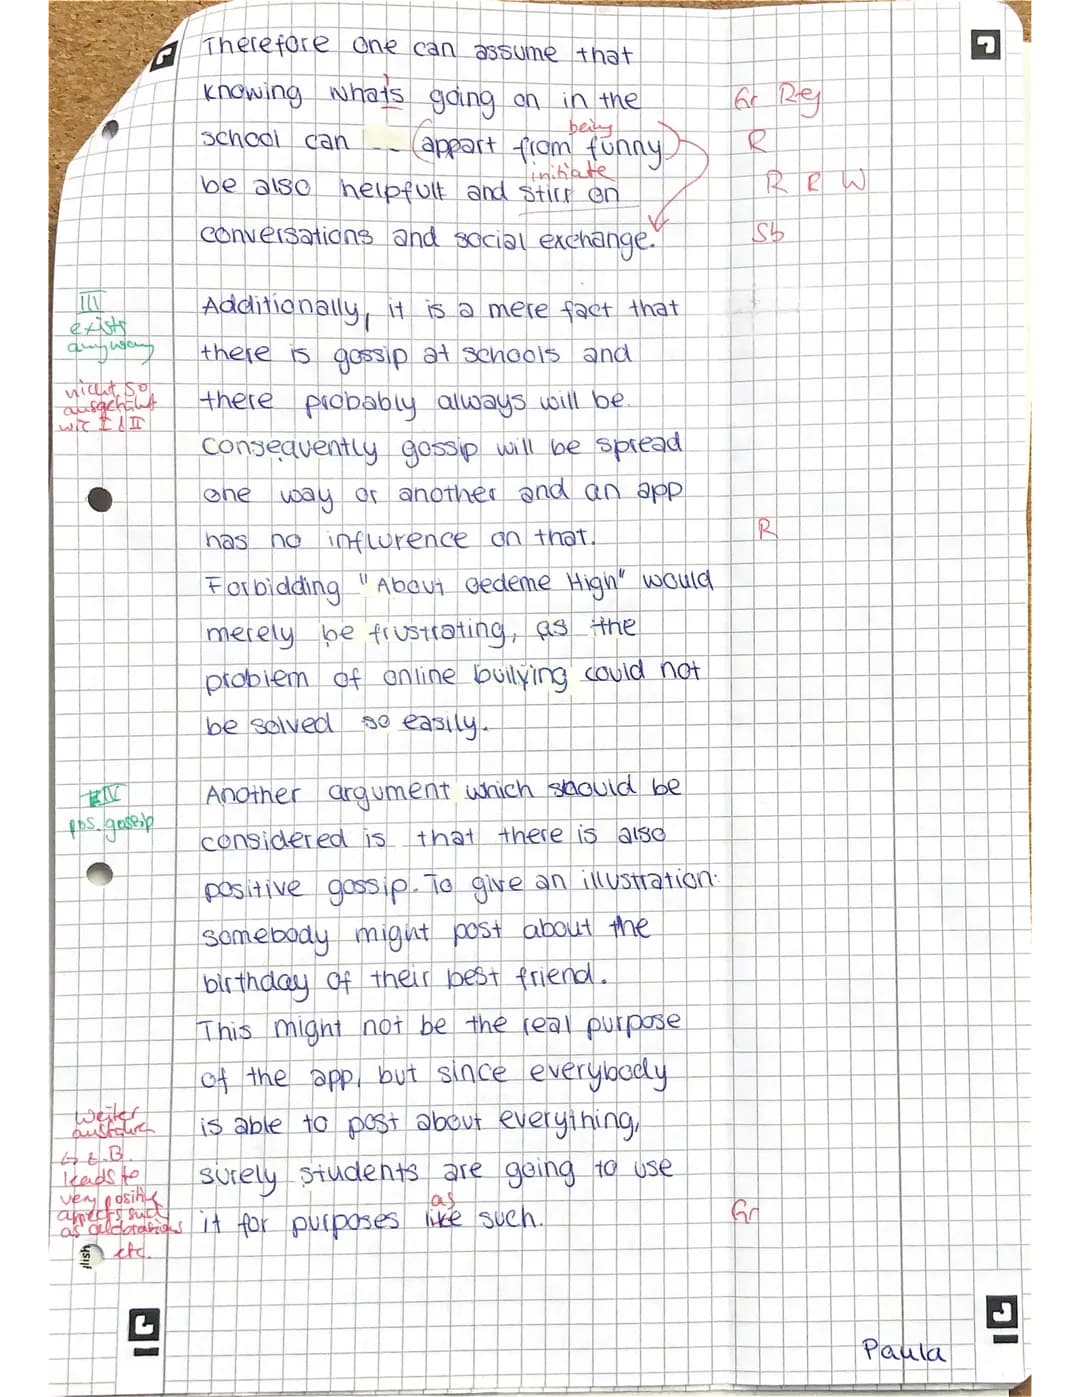 Therefore one can assume that
knowing what's going on in the
Gr Reg
being
school can -- (appart from funny)
R
initiate
be also helpfull and stirr on
R R W
conversations and social exchange.
Sb
III
exists
anyway
nicht so
ausgeführt
wie I & II
Additionally, it is a mere fact that
there is gossip at schools and
there probably always will be.
Consequently gossip will be spread
one way or another and an app
has no influrence on that.
R
Forbidding "About Oedeme High" would
merely be frustrating, as the
problem of online bullying could not
be solved so easily.
IV
pos. gossip
Another argument which should be
considered is that there is also
positive gossip. To give an illustration:
somebody might post about the
birthday of their best friend.
This might not be the real purpose
of the app, but since everybody
is able to post about everything,
surely students are going to use
as
it for purposes like such.
Gr
weiter
z.B.
leads to
very positive
aspects such
as
etc.
glish
Paula